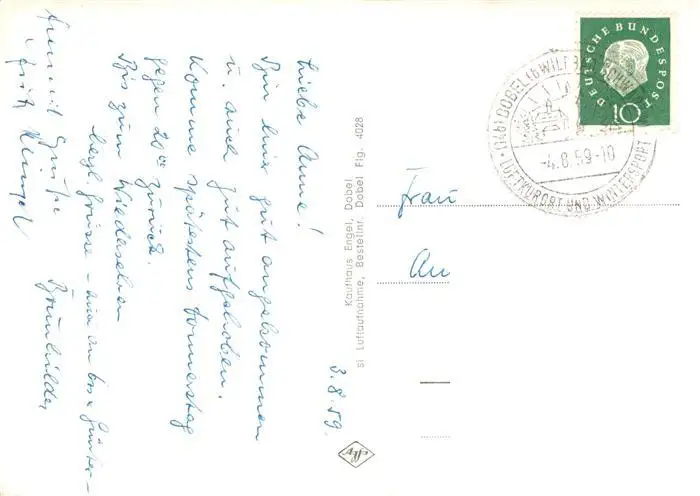 3.8.59.
Liebe Anne!
Bin hier gut angekommen
u. auch gut aufgehoben.
Komme spätestens Donnerstag
gegen 20⁰⁰ zurück.
Bis zum Wiedersehen
herzl. Grüsse – auch an
Grüße
Kaufhaus Engel, Dobel
si Luftaufnahme, Bestellnr. Dobel Flg. 4028
DEUTSCHE BUNDESPOST
10
(14b) DOBEL (b WILDBAD
-4.8.59-10
LUFTKURORT UND WINTERSPORT
Frau
An